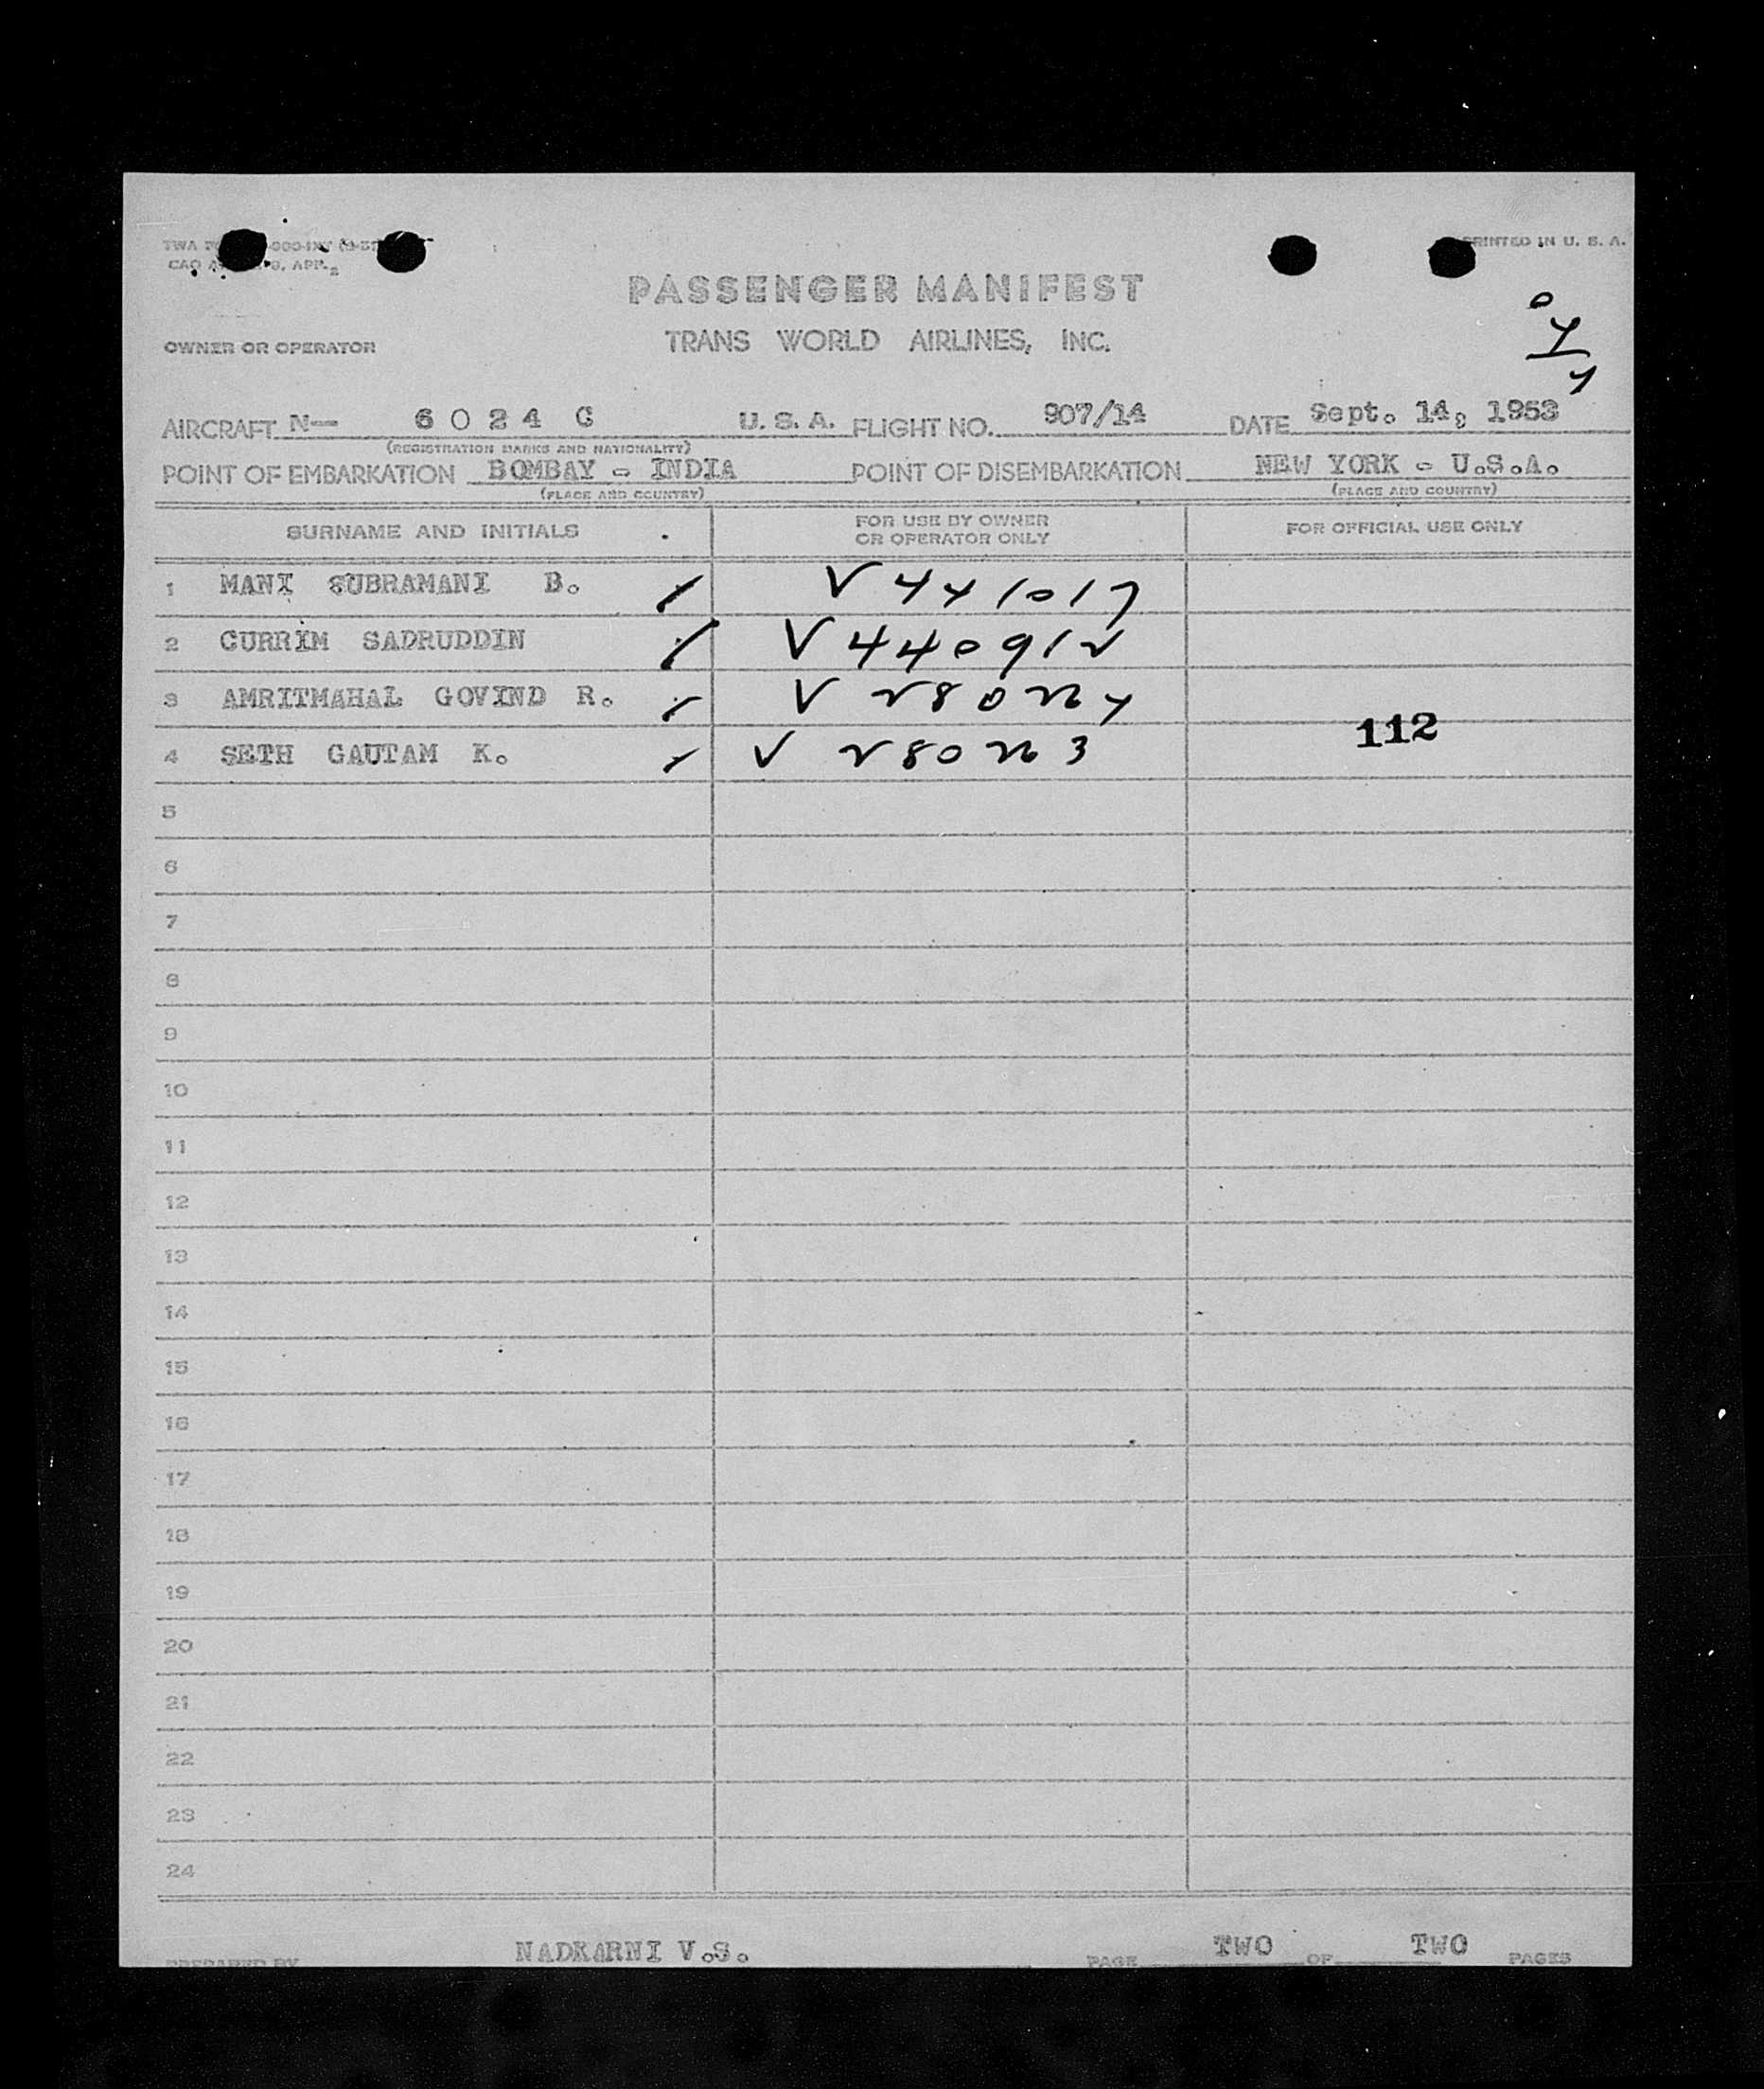 PRINTED IN U. S. A.
PASSENGER MANIFEST
OWNER OR OPERATOR TRANS WORLD AIRLINES, INC.
0
4
4
AIRCRAFT N— 6024 C U. S. A. FLIGHT NO. 907/14 DATE Sept. 14, 1953
(REGISTRATION MARKS AND NATIONALITY)
POINT OF EMBARKATION BOMBAY - INDIA POINT OF DISEMBARKATION NEW YORK - U.S.A.
(PLACE AND COUNTRY) (PLACE AND COUNTRY)
SURNAME AND INITIALS FOR USE BY OWNER OR OPERATOR ONLY FOR OFFICIAL USE ONLY
1 MANI SUBRAMANI B. V 441017
2 CURRIM SADRUDDIN V 440912
3 AMRITMAHAL GOVIND R. V 280224
112
4 SETH GAUTAM K. V 280223
5
6
7
8
9
10
11
12
13
14
15
16
17
18
19
20
21
22
23
24
PREPARED BY NADKARNI V.S. PAGE TWO OF TWO PAGES